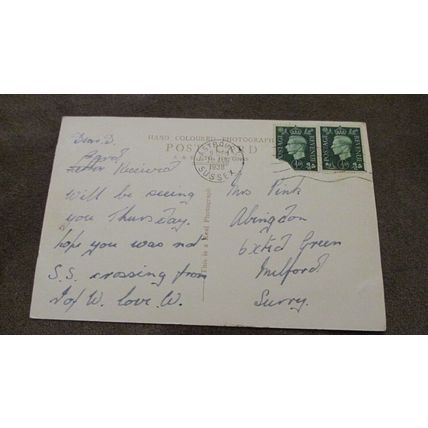 HAND COLOURED PHOTOGRAPH
POST CARD
EASTBOURNE
1938
SUSSEX
POSTAGE REVENUE
POSTAGE REVENUE
This is a Real Photograph
Dear D.
Card
Letter Received
Will be seeing
you Thursday.
hope you was not
S.S. crossing from
I of W. love W.
Mrs Pink
Abingdon
Green
Milford
Surry.